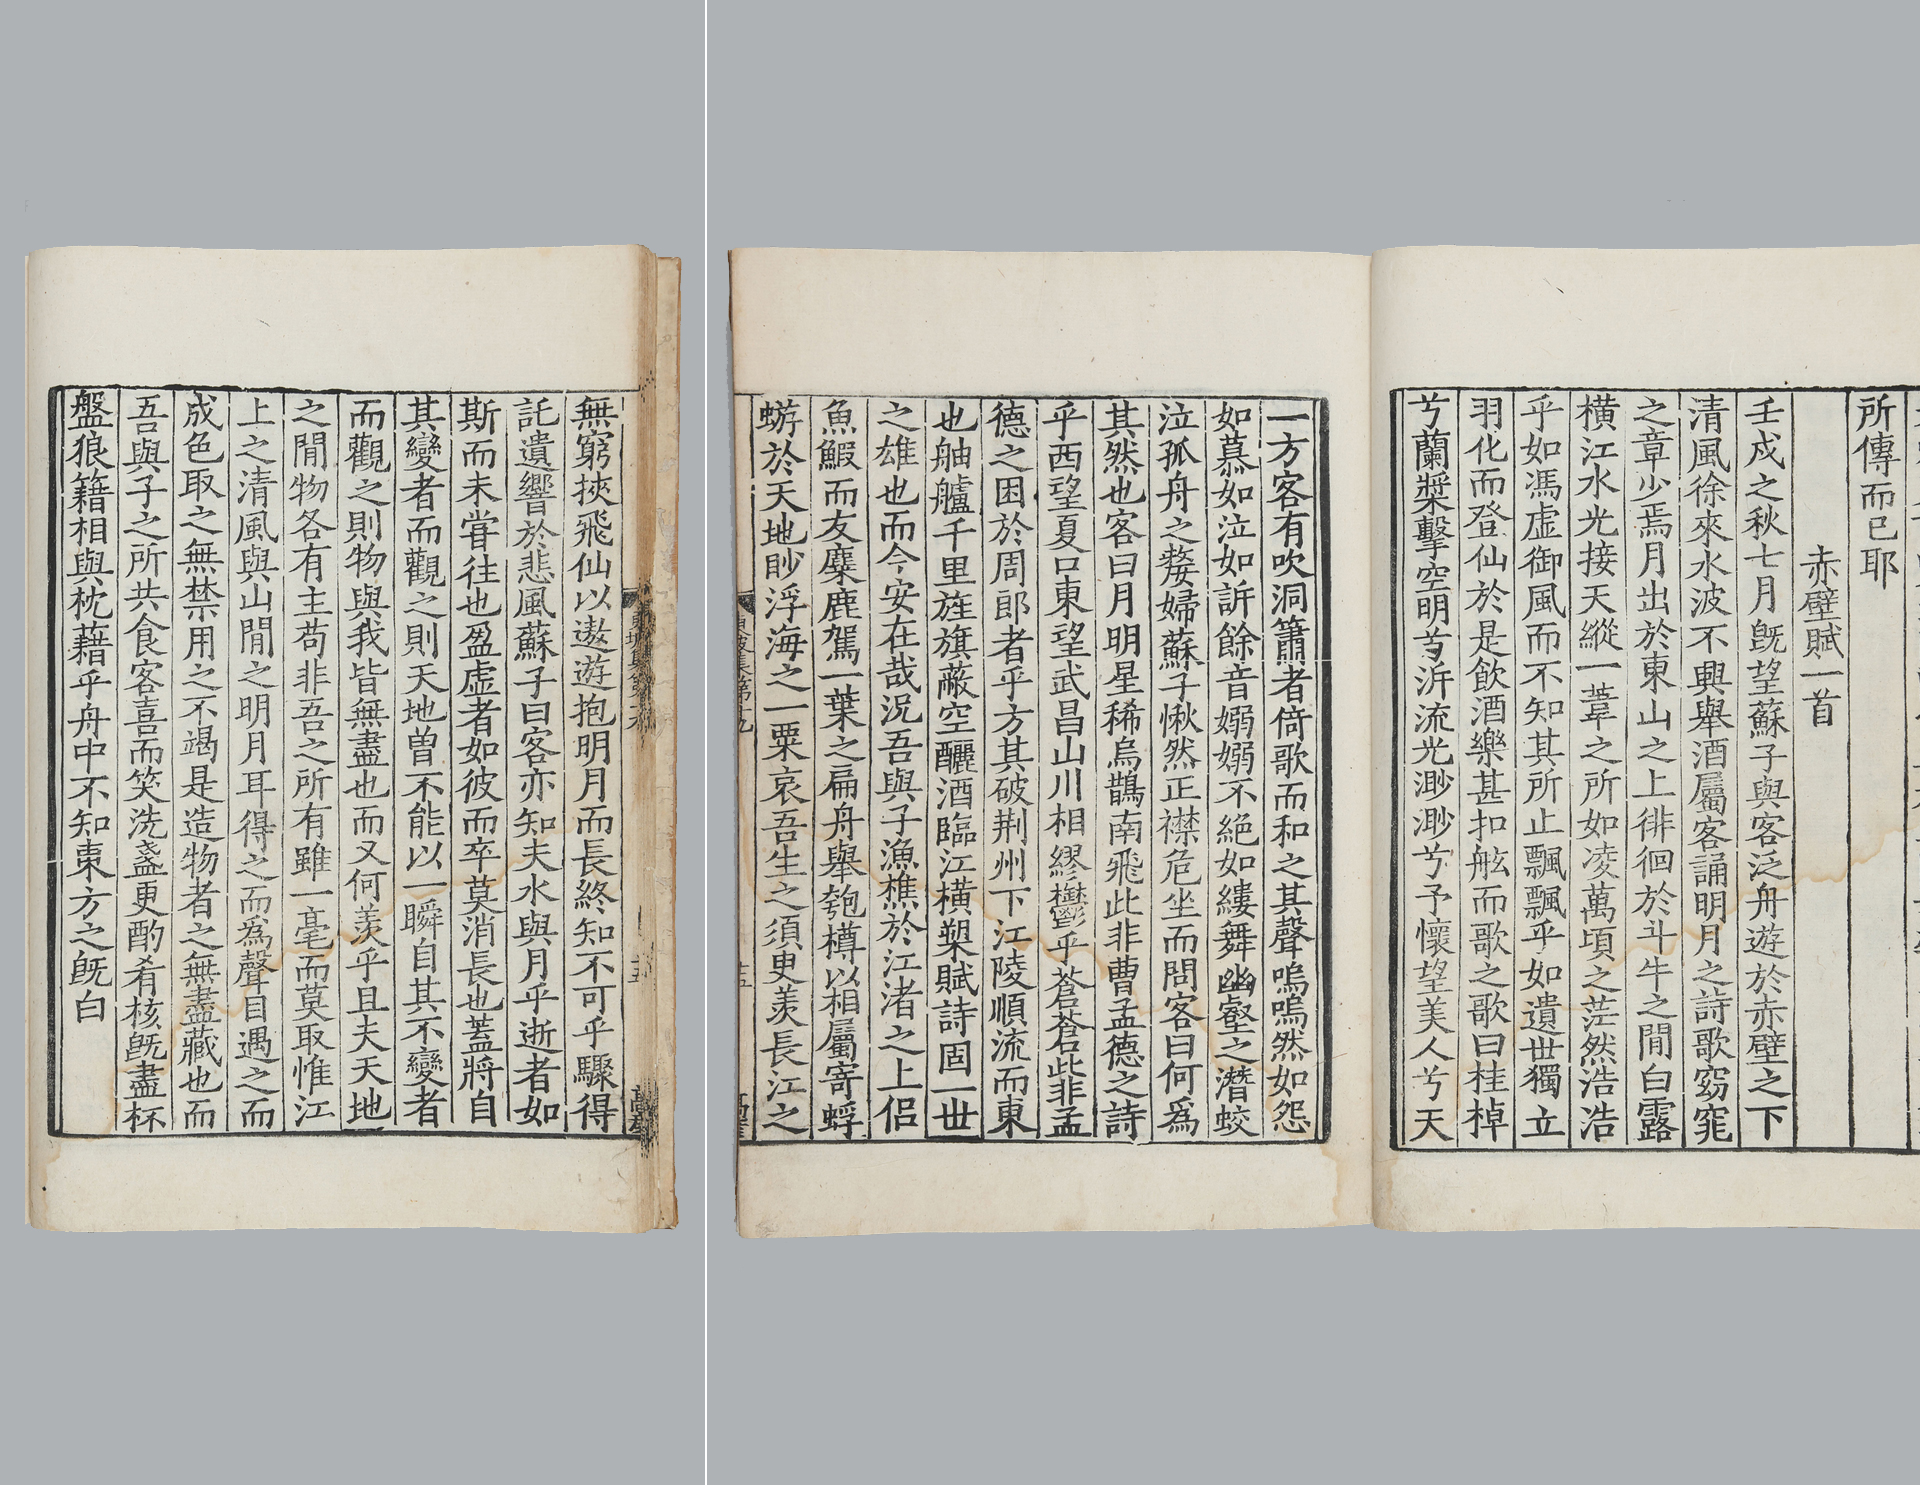 所傳而已耶
赤壁賦一首
壬戌之秋七月旣望蘇子與客泛舟遊於赤壁之下
清風徐來水波不興舉酒屬客誦明月之詩歌窈窕
之章少焉月出於東山之上徘徊於斗牛之間白露
橫江水光接天縱一葦之所如凌萬頃之茫然浩浩
乎如馮虛御風而不知其所止飄飄乎如遺世獨立
羽化而登仙於是飲酒樂甚扣舷而歌之歌曰桂棹
兮蘭槳擊空明兮泝流光渺渺兮予懷望美人兮天
一方客有吹洞簫者倚歌而和之其聲嗚嗚然如怨
如慕如泣如訴餘音嫋嫋不絕如縷舞幽壑之潛蛟
泣孤舟之嫠婦蘇子愀然正襟危坐而問客曰何爲
其然也客曰月明星稀烏鵲南飛此非曹孟德之詩
乎西望夏口東望武昌山川相繆鬱乎蒼蒼此非孟
德之困於周郎者乎方其破荆州下江陵順流而東
也舳艫千里旌旗蔽空釃酒臨江橫槊賦詩固一世
之雄也而今安在哉況吾與子漁樵於江渚之上侶
魚鰕而友麋鹿駕一葉之扁舟舉匏樽以相屬寄蜉
蝣於天地眇浮海之一粟哀吾生之須臾羨長江之
東坡集第十九
十五
無窮挾飛仙以遨遊抱明月而長終知不可乎驟得
託遺響於悲風蘇子曰客亦知夫水與月乎逝者如
斯而未甞往也盈虛者如彼而卒莫消長也蓋將自
其變者而觀之則天地曽不能以一瞬自其不變者
而觀之則物與我皆無盡也而又何羨乎且夫天地
之間物各有主苟非吾之所有雖一毫而莫取惟江
上之清風與山間之明月耳得之而爲聲目遇之而
成色取之無禁用之不竭是造物者之無盡藏也而
吾與子之所共食客喜而笑洗盞更酌肴核旣盡杯
盤狼籍相與枕藉乎舟中不知東方之旣白